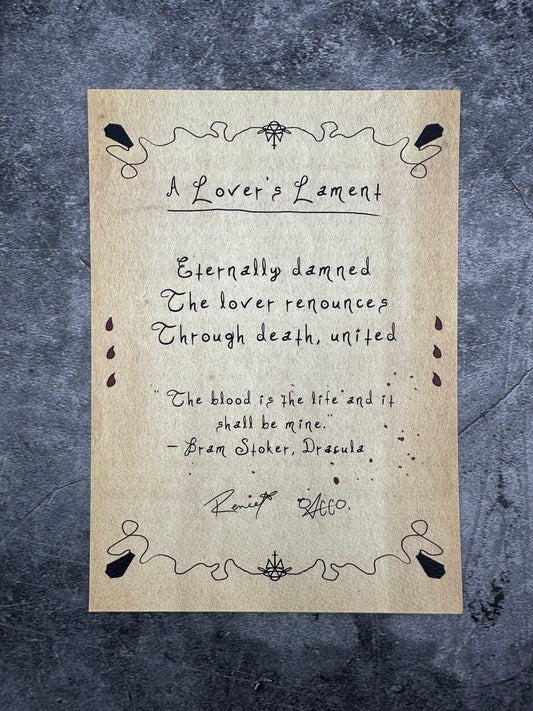 A Lover's Lament
Eternally damned
The lover renounces
Through death, united
"The blood is the life and it
shall be mine."
— Bram Stoker, Dracula